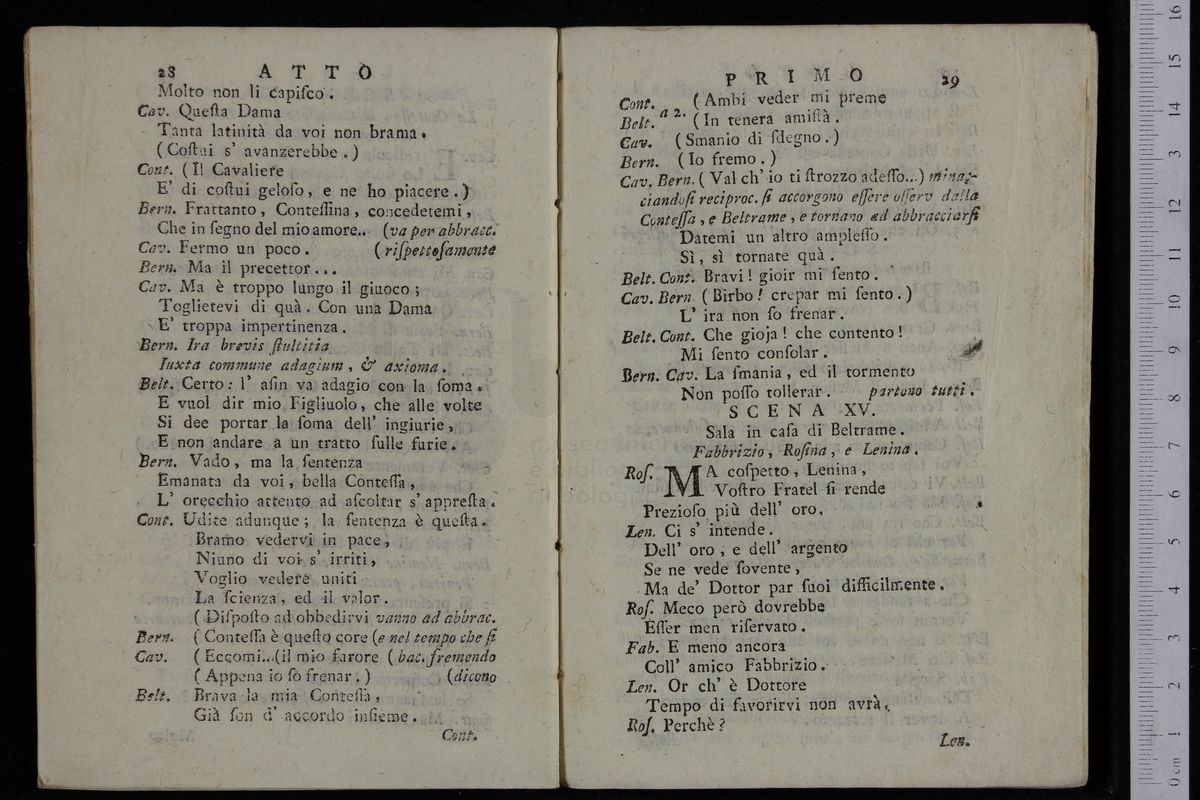 28 ATTO
Molto non li capiſco.
Cav. Queſta Dama
Tanta latinità da voi non brama.
(Coſtui s' avanzerebbe.)
Cont. (Il Cavaliere
E' di coſtui geloſo, e ne ho piacere.)
Bern. Frattanto, Conteſſina, concedetemi,
Che in ſegno del mio amore.. (va per abbracc.
Cav. Fermo un poco. (riſpettoſamente
Bern. Ma il precettor...
Cav. Ma è troppo lungo il giuoco;
Toglietevi di quà. Con una Dama
E' troppa impertinenza.
Bern. Ira brevis ſtultitia
Iuxta commune adagium, & axioma.
Belt. Certo: l' aſin va adagio con la ſoma.
E vuol dir mio Figliuolo, che alle volte
Si dee portar la ſoma dell' ingiurie,
E non andare a un tratto ſulle furie.
Bern. Vado, ma la ſentenza
Emanata da voi, bella Conteſſa,
L' orecchio attento ad aſcoltar s' appreſta.
Cont. Udite adunque; la ſentenza è queſta.
Bramo vedervi in pace,
Niuno di voi s' irriti,
Voglio vedere uniti
La ſcienza, ed il valor.
(Diſpoſto ad obbedirvi vanno ad abbrac.
Bern. (Conteſſa è queſto core (e nel tempo che ſi
Cav. (Eccomi...(il mio furore (bac. fremendo
(Appena io ſo frenar.) (dicono
Belt. Brava la mia Conteſſa,
Già ſon d' accordo inſieme.
Cont.
PRIMO 29
Cont. a 2. (Ambi veder mi preme
Belt. (In tenera amiſtà.
Cav. (Smanio di ſdegno.)
Bern. (Io fremo.)
Cav. Bern. (Val ch' io ti ſtrozzo adeſſo...) minac-
ciandoſi reciproc. ſi accorgono eſſere oſſerv dalla
Conteſſa, e Beltrame, e tornano ad abbracciarſi
Datemi un altro ampleſſo.
Sì, sì tornate quà.
Belt. Cont. Bravi! gioir mi ſento.
Cav. Bern (Birbo! crepar mi ſento.)
L' ira non ſo frenar.
Belt. Cont. Che gioja! che contento!
Mi ſento conſolar.
Bern. Cav. La ſmania, ed il tormento
Non poſſo tollerar. partono tutti.
SCENA XV.
Sala in caſa di Beltrame.
Fabbrizio, Roſina, e Lenina.
Roſ. MA coſpetto, Lenina,
Voſtro Fratel ſi rende
Prezioſo più dell' oro.
Len. Ci s' intende.
Dell' oro, e dell' argento
Se ne vede ſovente,
Ma de' Dottor par ſuoi difficilmente.
Roſ. Meco però dovrebbe
Eſſer men riſervato.
Fab. E meno ancora
Coll' amico Fabbrizio.
Len. Or ch' è Dottore
Tempo di favorirvi non avrà.
Roſ. Perchè?
Len.
0 cm 1 2 3 4 5 6 7 8 9 10 11 12 13 14 15 16